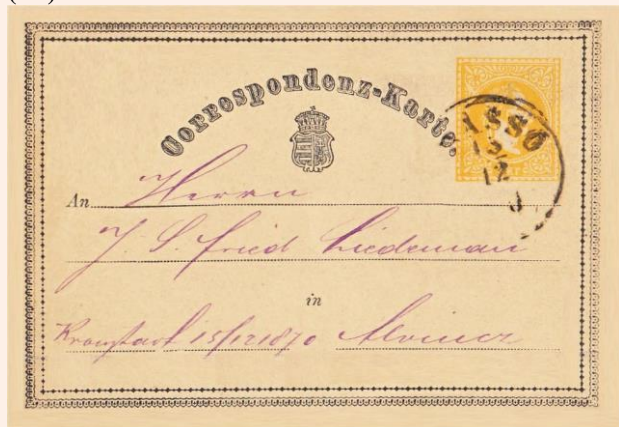 Correspondenz-Karte.
ASSÓ
15
12
An Herrn
J. S. Fried Liedeman
in
Kronstadt 15/12 1870 Alvincz